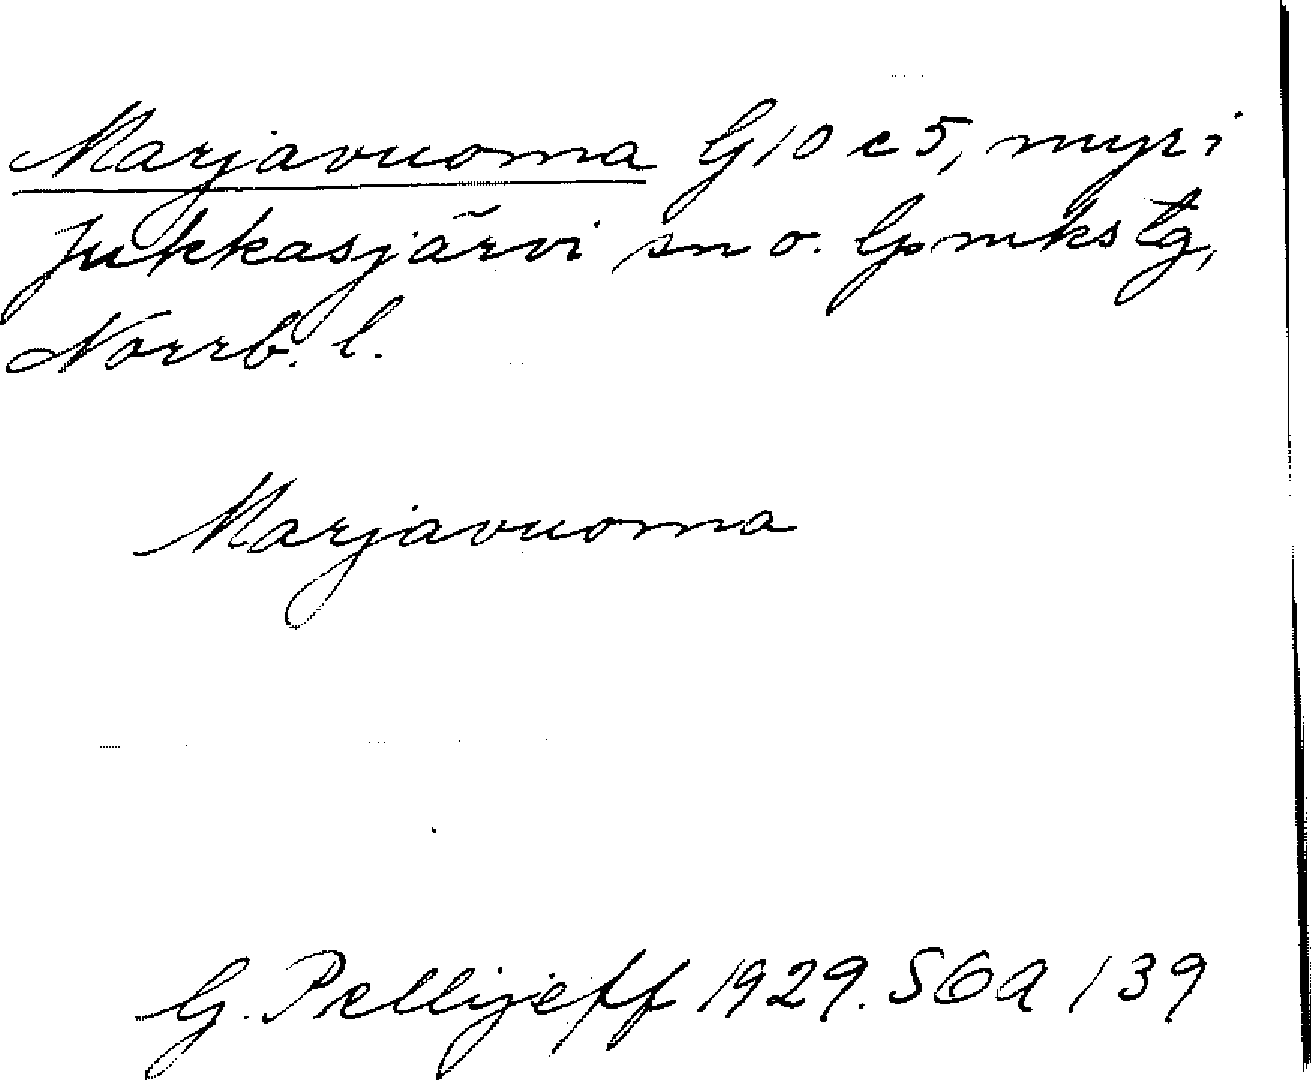 Marjavuoma G10 c5, myr i
Jukkasjärvi sn o. lpmkstg,
Norrb. l.
Marjavuoma
G. Pellijeff 1929. SOA 139